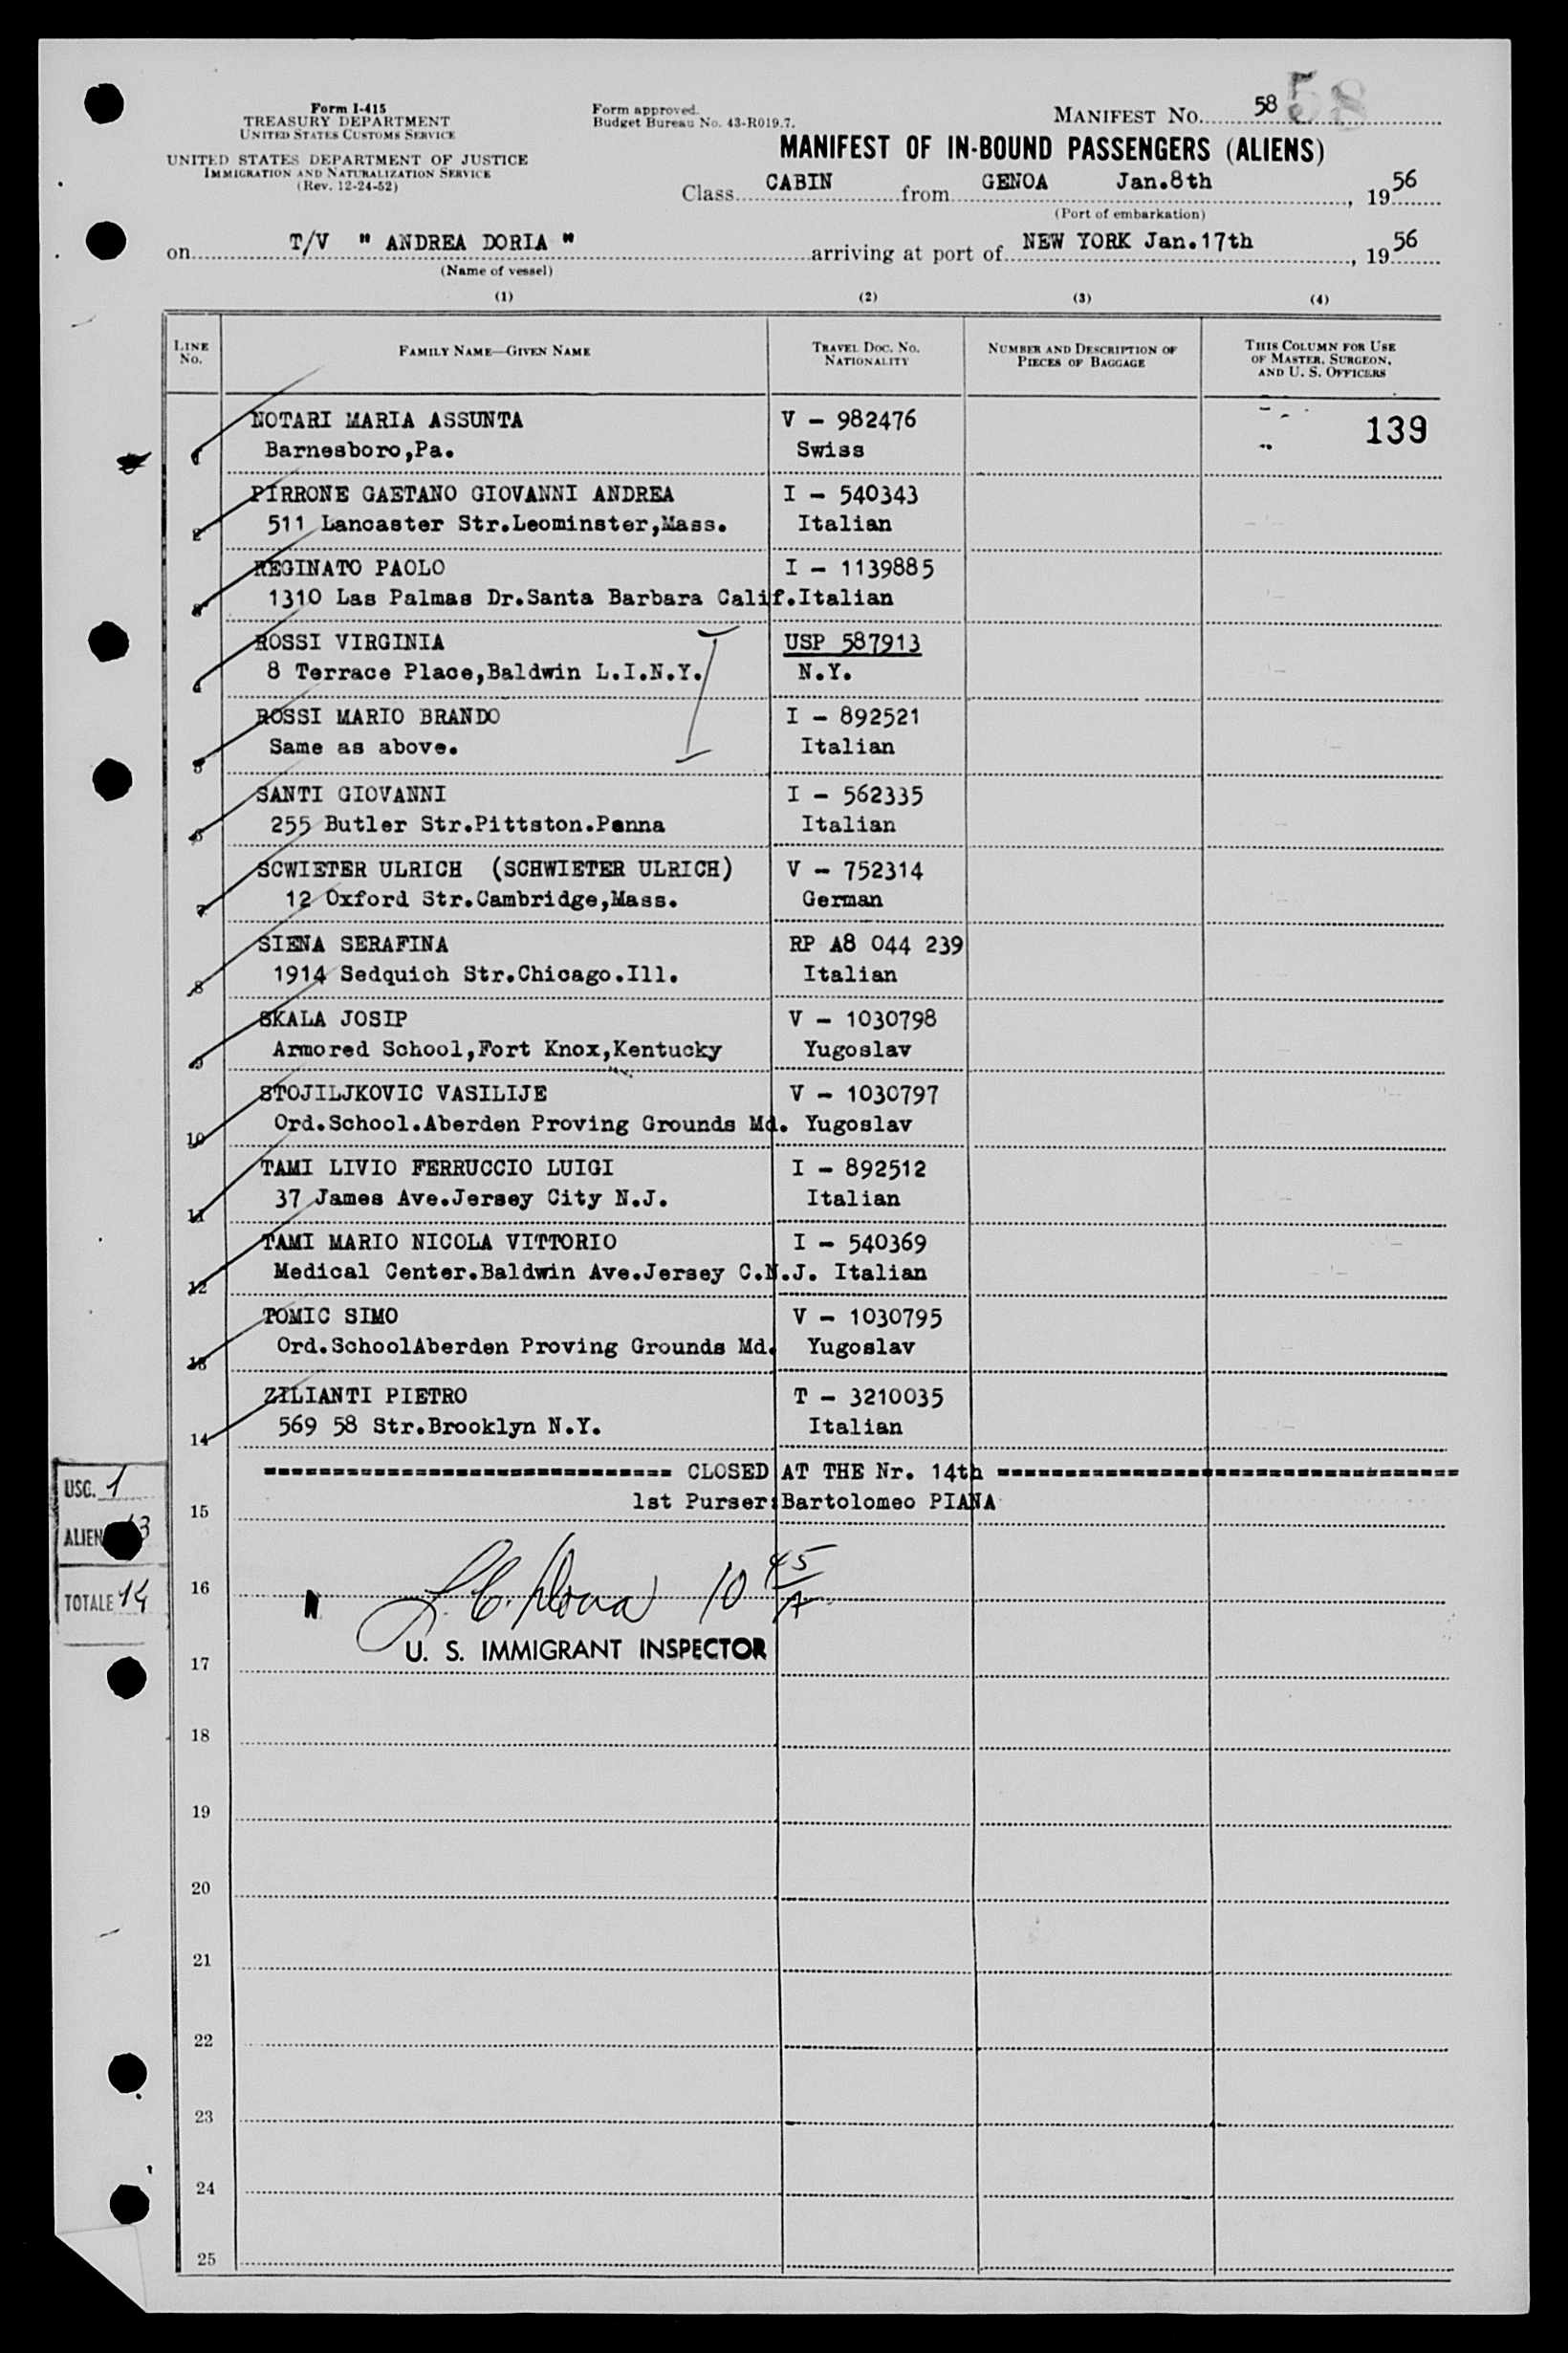 Form I-415
TREASURY DEPARTMENT
UNITED STATES CUSTOMS SERVICE
UNITED STATES DEPARTMENT OF JUSTICE
IMMIGRATION AND NATURALIZATION SERVICE
(Rev. 12-24-52)
Form approved.
Budget Bureau No. 43-R019.7.
MANIFEST No. 58 58
MANIFEST OF IN-BOUND PASSENGERS (ALIENS)
Class CABIN from GENOA Jan.8th, 1956
(Port of embarkation)
on T/V " ANDREA DORIA " arriving at port of NEW YORK Jan.17th, 1956
(Name of vessel)
(1) (2) (3) (4)
LINE No. FAMILY NAME—GIVEN NAME TRAVEL DOC. No. NATIONALITY NUMBER AND DESCRIPTION OF PIECES OF BAGGAGE THIS COLUMN FOR USE OF MASTER, SURGEON, AND U. S. OFFICERS
NOTARI MARIA ASSUNTA V - 982476 139
1 Barnesboro,Pa. Swiss
PIRRONE GAETANO GIOVANNI ANDREA I - 540343
2 511 Lancaster Str.Leominster,Mass. Italian
REGINATO PAOLO I - 1139885
3 1310 Las Palmas Dr.Santa Barbara Calif.Italian
ROSSI VIRGINIA USP 587913
4 8 Terrace Place,Baldwin L.I.N.Y. N.Y.
ROSSI MARIO BRANDO I - 892521
5 Same as above. Italian
SANTI GIOVANNI I - 562335
6 255 Butler Str.Pittston.Penna Italian
SCWIETER ULRICH (SCHWIETER ULRICH) V - 752314
7 12 Oxford Str.Cambridge,Mass. German
SIENA SERAFINA RP A8 044 239
8 1914 Sedquich Str.Chicago.Ill. Italian
SKALA JOSIP V - 1030798
9 Armored School,Fort Knox,Kentucky Yugoslav
STOJILJKOVIC VASILIJE V - 1030797
10 Ord.School.Aberden Proving Grounds Md. Yugoslav
TAMI LIVIO FERRUCCIO LUIGI I - 892512
11 37 James Ave.Jersey City N.J. Italian
TAMI MARIO NICOLA VITTORIO I - 540369
12 Medical Center.Baldwin Ave.Jersey C.N.J. Italian
TOMIC SIMO V - 1030795
13 Ord.SchoolAberden Proving Grounds Md. Yugoslav
ZILIANTI PIETRO T - 3210035
14 569 58 Str.Brooklyn N.Y. Italian
CLOSED AT THE Nr. 14th
15 1st Purser:Bartolomeo PIANA
USC. 1
ALIEN 13
TOTALE 14
16 10 45/A
U. S. IMMIGRANT INSPECTOR
17
18
19
20
21
22
23
24
25